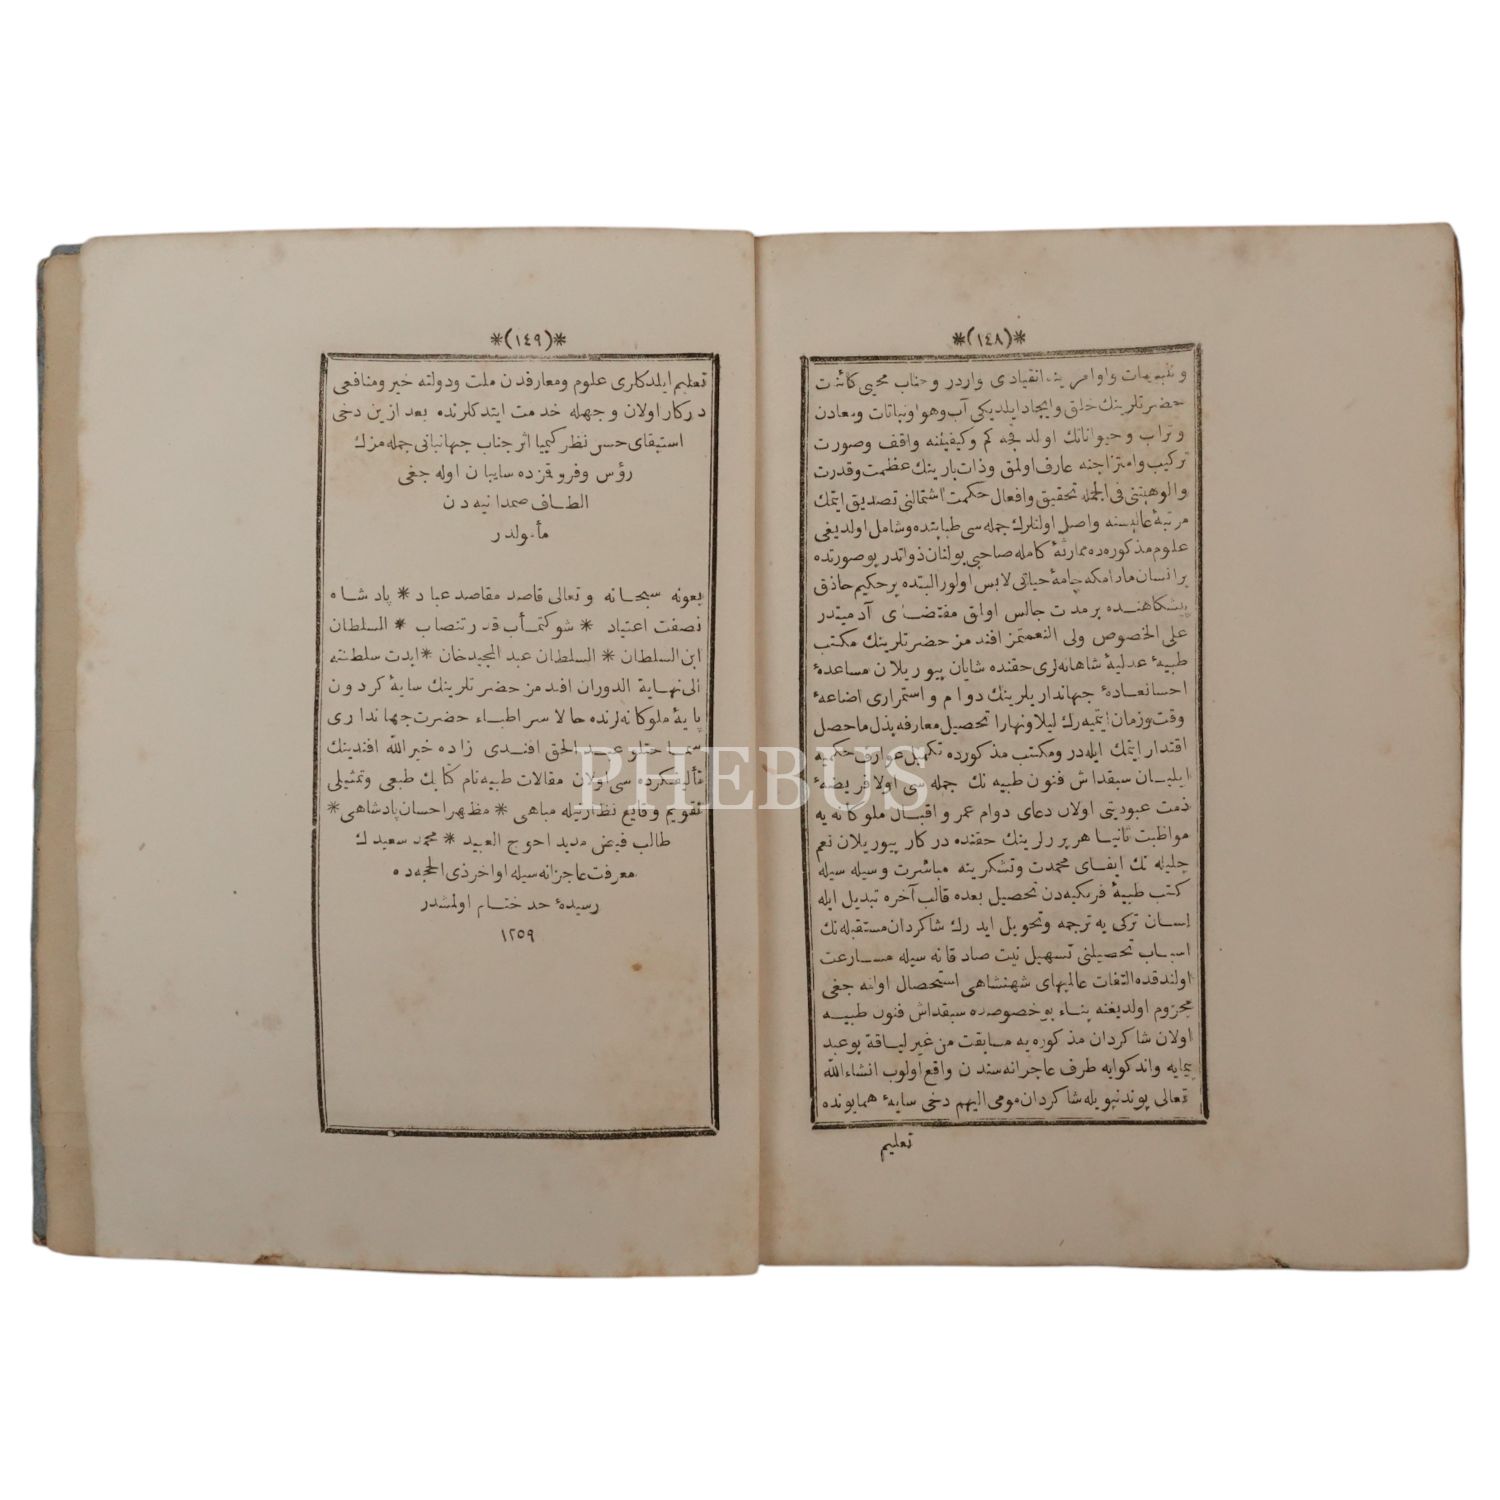 *(١٤٨)*
و تنبيهات واوامرينه انقيادى واردر وجناب محيى كائنات
حضرتلرينك خلق وايجاد ايلديكى آب وهوا ونباتات ومعادن
وتراب وحيواناتك اولدیجه كم وكيفيتنه واقف وصورت
تركيب وامتزاجنه عارف اولمق وذات بارينك عظمت وقدرت
والوهيتنى فى الجمله تحقيق وافعال حكمت اشتمالنى تصديق ايتمك
مرتبهٔ عاليسنه واصل اولنلرك جمله سى طبابتده وشامل اولديغى
علوم مذكوره ده ممارثهٔ كامله صاحبى بولنان ذواتدر بو صورتده
بر انسان مادامكه جامهٔ حياتى لابس اولور البته ده بر حكيم حاذق
پيشكاهنده بر مدت جالس اولمق مقتضاى آدميتدر
على الخصوص ولى النعمتمز افندمز حضرتلرينك مكتب
طبيهٔ عدليهٔ شاهانه لرى حقنده شايان بيوريلان مساعدهٔ
احسانعادهٔ جهانداريلرينك دوام واستمرارى اضاعهٔ
وقت وزمان ايتميه رك ليلا ونهارا تحصيل معارفه بذل ماحصل
اقتدار ايتمك ايله در ومكتب مذكورده تكميل عوارف حكميه
ايليان سبقداش فنون طبيه نك جمله سى اولا فريضهٔ
ذمت عبوديتى اولان دعاى دوام عمر واقبال ملوكانه يه
مواظبت ثانيا هر برلرينك حقنده دركار بيوريلان نعم
جليله نك ايفاى محمدت وتشكرينه مباشرت وسيله سيله
كتب طبيهٔ فرنكيه دن تحصيل بعده قالب آخره تبديل ايله
لسان تركى يه ترجمه وتحويل ايدرك شاكردان مستقبله نك
اسباب تحصيلنى تسهيل نيت صادقانه سيله مسارعت
اولندقده التفات عاليبهاى شهنشاهى استحصال اولنه جغى
مجزوم اولديغنه بناء بو خصوصده سبقداش فنون طبيه
اولان شاكردان مذكوره يه مسابقت من غير لياقة بو عبد
بيمايه واندكوايه طرف عاجزانه سندن واقع اولوب انشاءالله
تعالى پوندنبويله شاكردان مومى اليهم دخى سايهٔ همايونده
تعليم
*(١٤٩)*
تعليم ايلدكلرى علوم ومعارفدن ملت ودولته خير ومنافعى
دركار اولان وجهله خدمت ايتدكلرنده بعد ازين دخى
استبقاى حسن نظر كيميا اثر جناب جهانبانى جمله مزك
رؤس وفروقمزده سايبان اوله جغى
الطاف صمدانيه دن
مأمولدر
بعونه سبحانه وتعالى قاصد مقاصد عباد * پادشاه
نصفت اعتياد * شوكتمآب قدرتنصاب * السلطان
ابن السلطان * السلطان عبد المجيد خان * ايدت سلطنته
الى نهاية الدوران افندمز حضرتلرينك سايهٔ كردون
پايهٔ ملوكانه لرنده حالا سر اطباء حضرت جهاندارى
سماحتلو عبد الحق افندى زاده خير الله افندينك
تأليفكرده سى اولان مقالات طبيه نام كتابك طبعى وتمثيلى
تقويم وقايع نظارتيله مباهى * مظهر احسان پادشاهى *
طالب فيض مديد احوج العبيد * محمد سعيدك
معرفت عاجزانه سيله اواخر ذى الحجه ده
رسيدهٔ حد ختام اولمشدر
١٢٥٩
PHEBUS